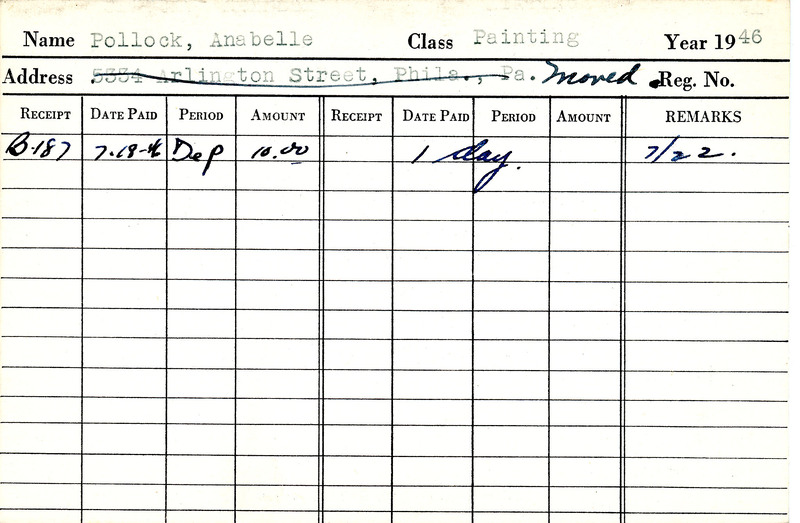 Name Pollock, Anabelle Class Painting Year 1946
Address 5334 Arlington Street, Phila., Pa. moved Reg. No.
RECEIPT DATE PAID PERIOD AMOUNT RECEIPT DATE PAID PERIOD AMOUNT REMARKS
B-187 7-19-46 Dep 10.00 1 day. 7/22.